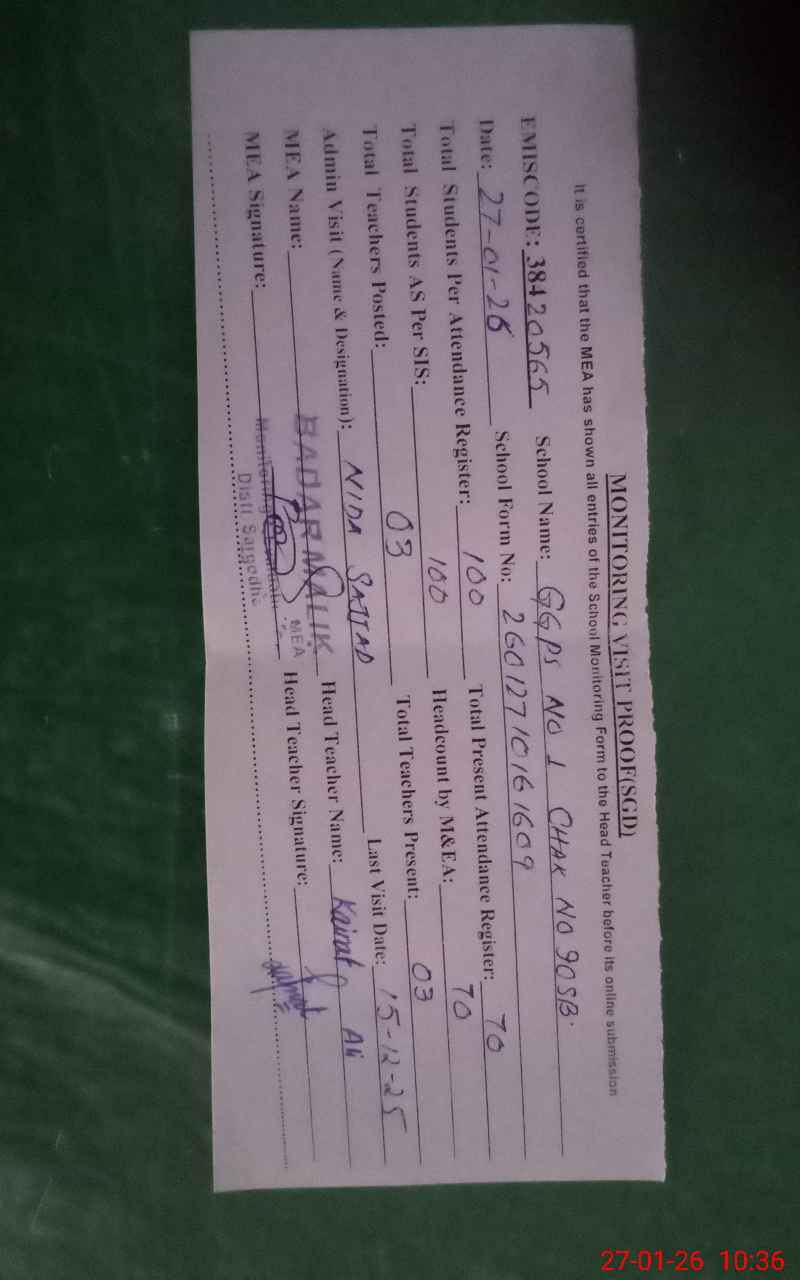 MONITORING VISIT PROOF(SGD)
It is certified that the MEA has shown all entries of the School Monitoring Form to the Head Teacher before its online submission
EMISCODE: 38420565 School Name: GGPS NO 1 CHAK NO 90SB.
Date: 27-01-26 School Form No: 2601271016 1609
Total Students Per Attendance Register: 100 Total Present Attendance Register: 70
Total Students AS Per SIS: 100 Headcount by M&EA: 70
Total Teachers Posted: 03 Total Teachers Present: 03
Admin Visit (Name & Designation): NIDA SAJJAD Last Visit Date: 15-12-25
MEA Name: BADAR MALIK MEA Head Teacher Name: Kainat Ali
MEA Signature: Monitoring Head Teacher Signature:
Distt Sargodha
27-01-26 10:36